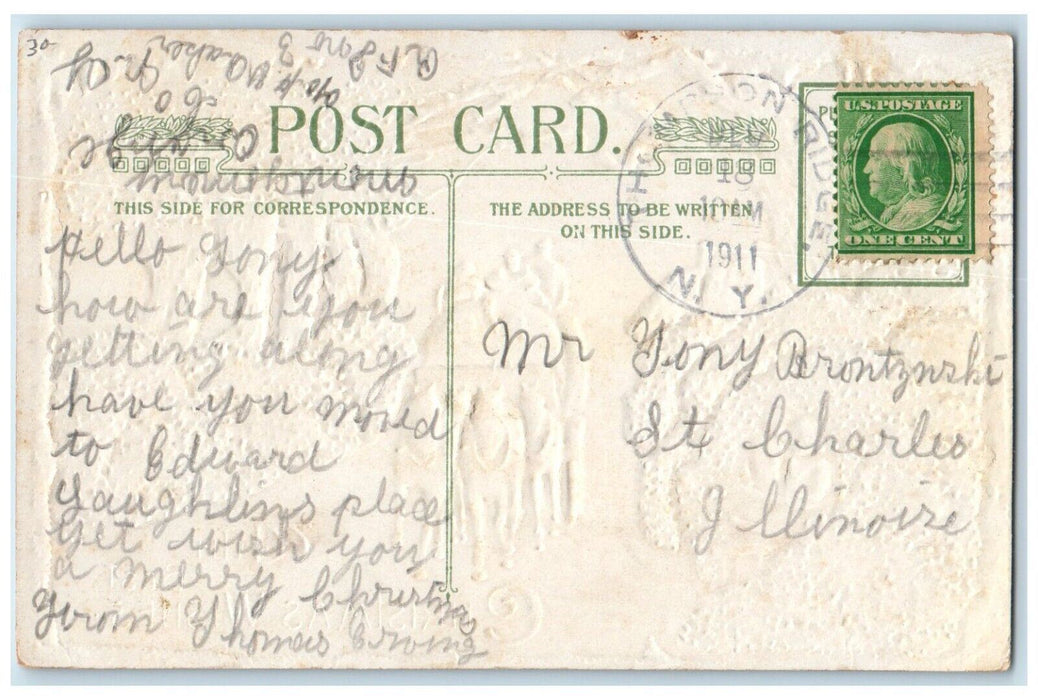 30
POST CARD.
THIS SIDE FOR CORRESPONDENCE.
THE ADDRESS TO BE WRITTEN
ON THIS SIDE.
U.S. POSTAGE
ONE CENT
DEC
18
10 AM
1911
N. Y.
Hello Tony
how are you
getting along
have you moved
to Edward
Laughlins place
yet wish you
a merry Christmas
From Thomas Erving
Mr Tony Brontznski
St Charles
Illinoise